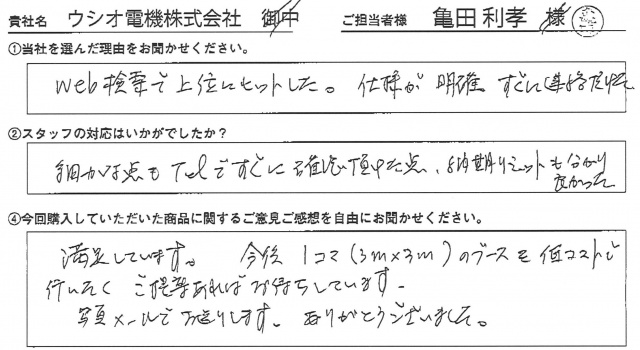 貴社名 ウシオ電機株式会社 御中 ご担当者様 亀田利孝 様
①当社を選んだ理由をお聞かせください。
Web検索で上位にヒットした。仕様が明確。すぐに連絡だけた
②スタッフの対応はいかがでしたか?
細かな点もTelですぐに確認頂けた点、納期リミットも分かり
良かった
④今回購入していただいた商品に関するご意見ご感想を自由にお聞かせください。
満足しています。今後1コマ(3m×3m)のブースを低コストで
行いたくご提案あればお待ちしています。
写真メールでお送りします。ありがとうございました。